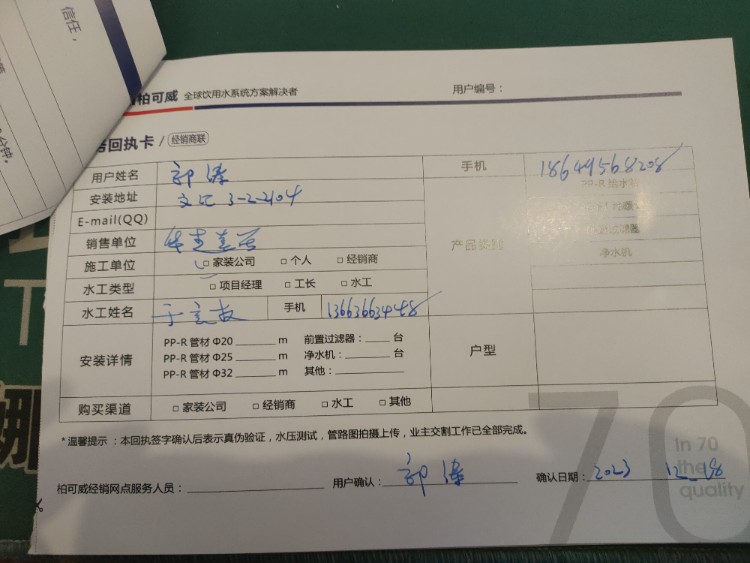 信任,
分钟。
柏可威 全球饮用水系统方案解决者 用户编号：
回执卡 / 经销商联
用户姓名 郭涛 手机 18649568208
安装地址 文汇 3-2-2104 PP-R给水管
E-mail(QQ)
销售单位 产品类别
净水机
施工单位 □ 家装公司 □ 个人 □ 经销商
水工类型 □ 项目经理 □ 工长 □ 水工
水工姓名 手机 13663663448
安装详情 PP-R 管材 Φ20 m 前置过滤器： 台 户型
PP-R 管材 Φ25 m 净水机： 台
PP-R 管材 Φ32 m 其他：
购买渠道 □ 家装公司 □ 经销商 □ 水工 □ 其他
*温馨提示：本回执签字确认后表示真伪验证，水压测试，管路图拍摄上传，业主交割工作已全部完成。
70
In 70
the
quality
柏可威经销网点服务人员： 用户确认： 郭涛 确认日期： 2023 12.